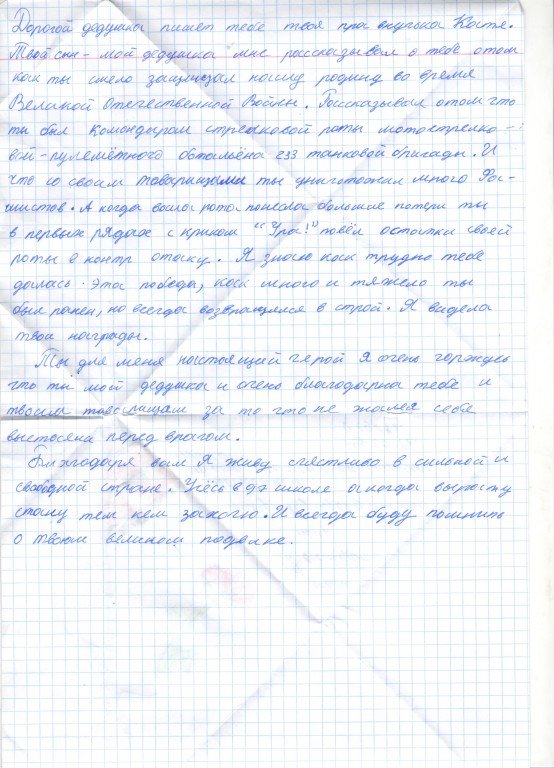 Дорогой дедушка пишет тебе твоя правнучка Катя.
Твой сын - мой дедушка мне рассказывал о тебе отом
как ты смело защищал нашу родину во время
Великой Отечественной Войны. Рассказывал отом что
ты был командыром стрелковой роты мотострелко-
вой-пулемётного обтальёна 233 танковой бригады. И
что со своим товарищами ты уничтожил много Фа-
шистов. А когда ваша рота понесла большие потери ты
в первых рядах с криком "Ура!" повёл остатки своей
роты в контр отаку. Я знаю как трудно тебе
далась эта победа, как много и тяжело ты
был ранен, но всегда возвращался в строй. Я видела
твои награды.
Ты для меня настоящий герой я очень горжусь
что ты мой дедушка и очень благодарна тебе и
твоим товарищам за то что не жалея себя
выстояли перед врагом.
Благодаря вам я живу счастливо в сильной и
свободной стране. Учусь в школе а когда вырасту
стану тем кем захочу. И всегда буду помнить
о твоём великом подвиге.